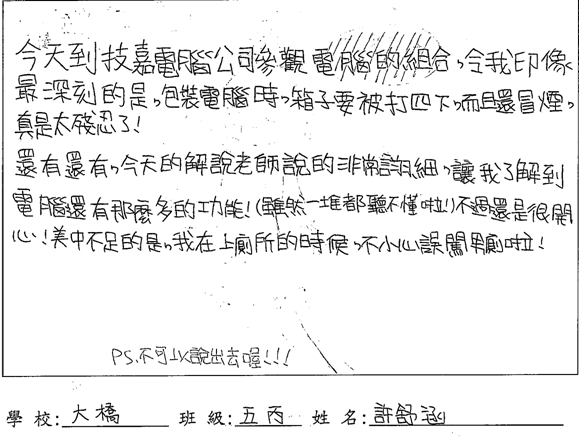 今天到技嘉電腦公司參觀電腦的組合，令我印像
最深刻的是，包裝電腦時，箱子要被打四下，而且還冒煙，
真是太殘忍了！
還有還有，今天的解說老師說的非常詳細，讓我了解到
電腦還有那麼多的功能！(雖然一堆都聽不懂啦！)不過還是很開
心！美中不足的是，我在上廁所的時候，不小心誤闖男廁啦！
PS.不可以說出去喔！！！
學校：大橋 班級：五丙 姓名：許舒涵